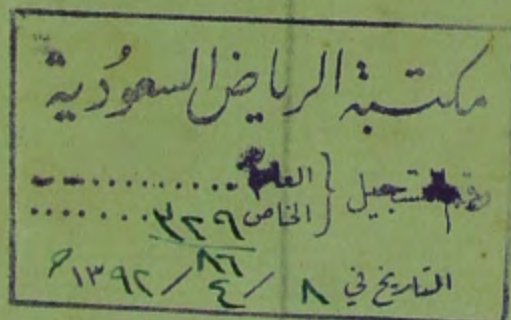 مكتبة الرياض السعودية
رقم التسجيل { العام ..........
الخاص ٣٢٩/٨٦ ......
التاريخ في ٨ / ٤ / ١٣٩٢ هـ